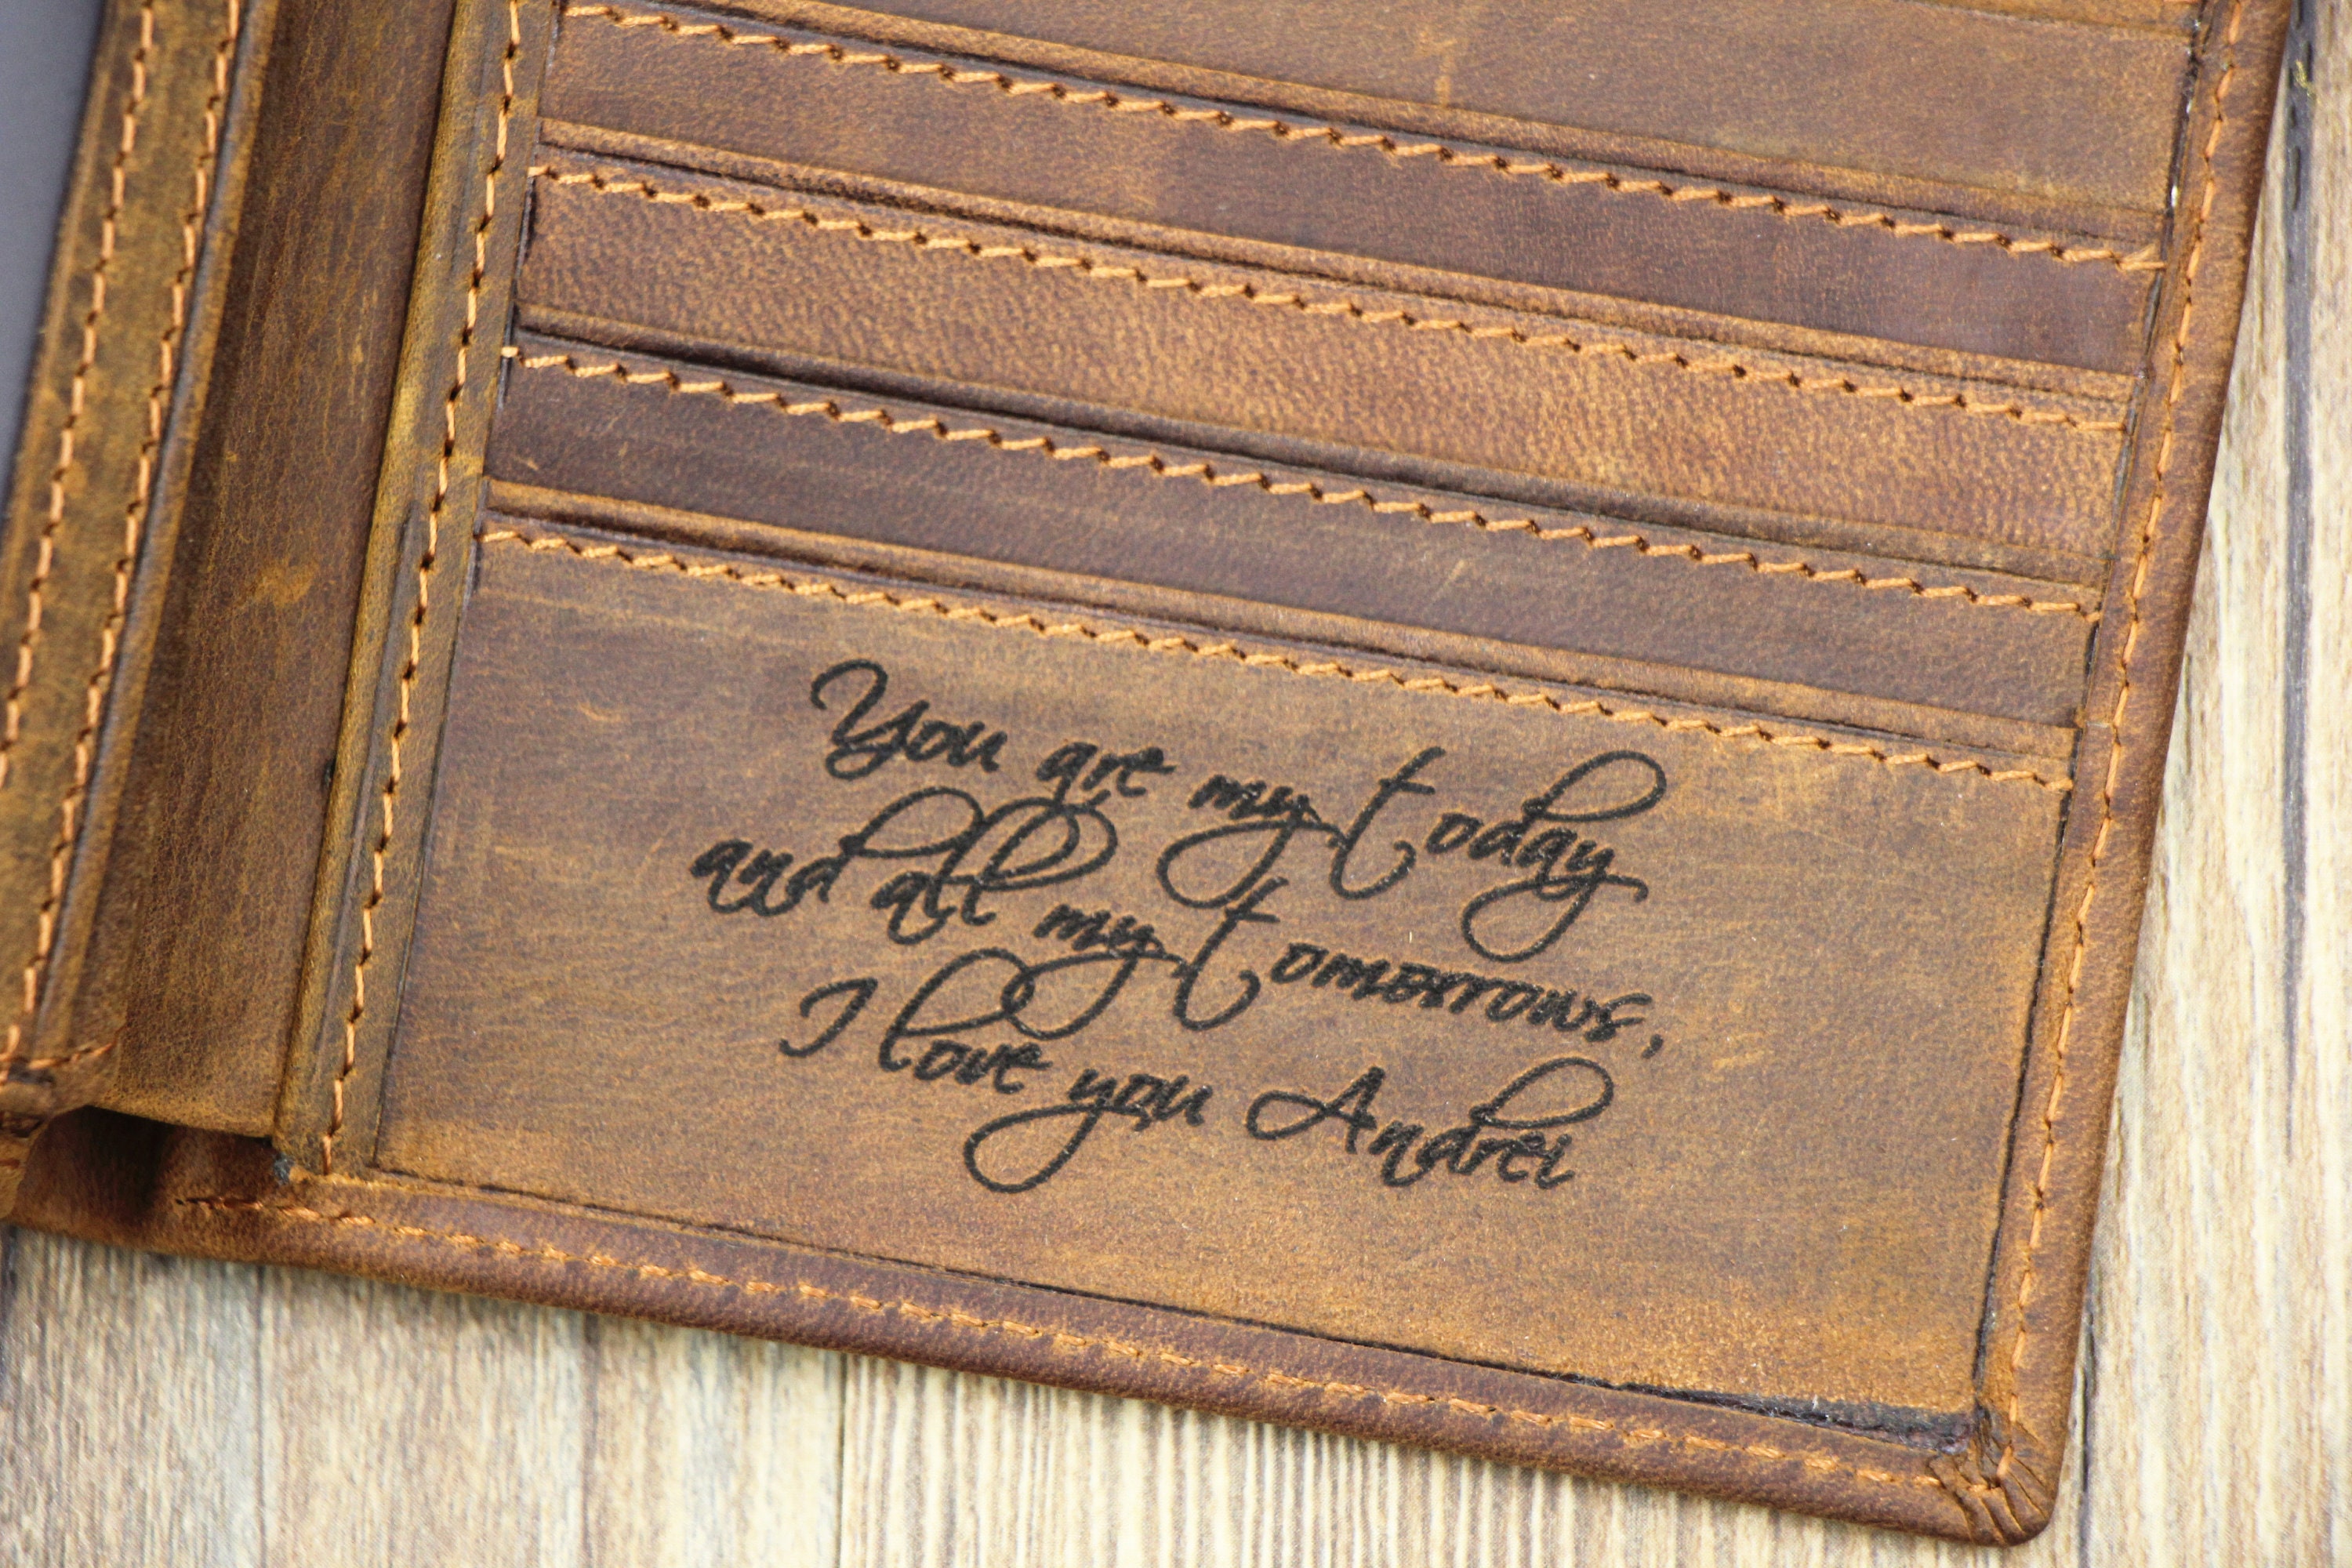 You are my today
and all my tomorrows,
I love you Andrei